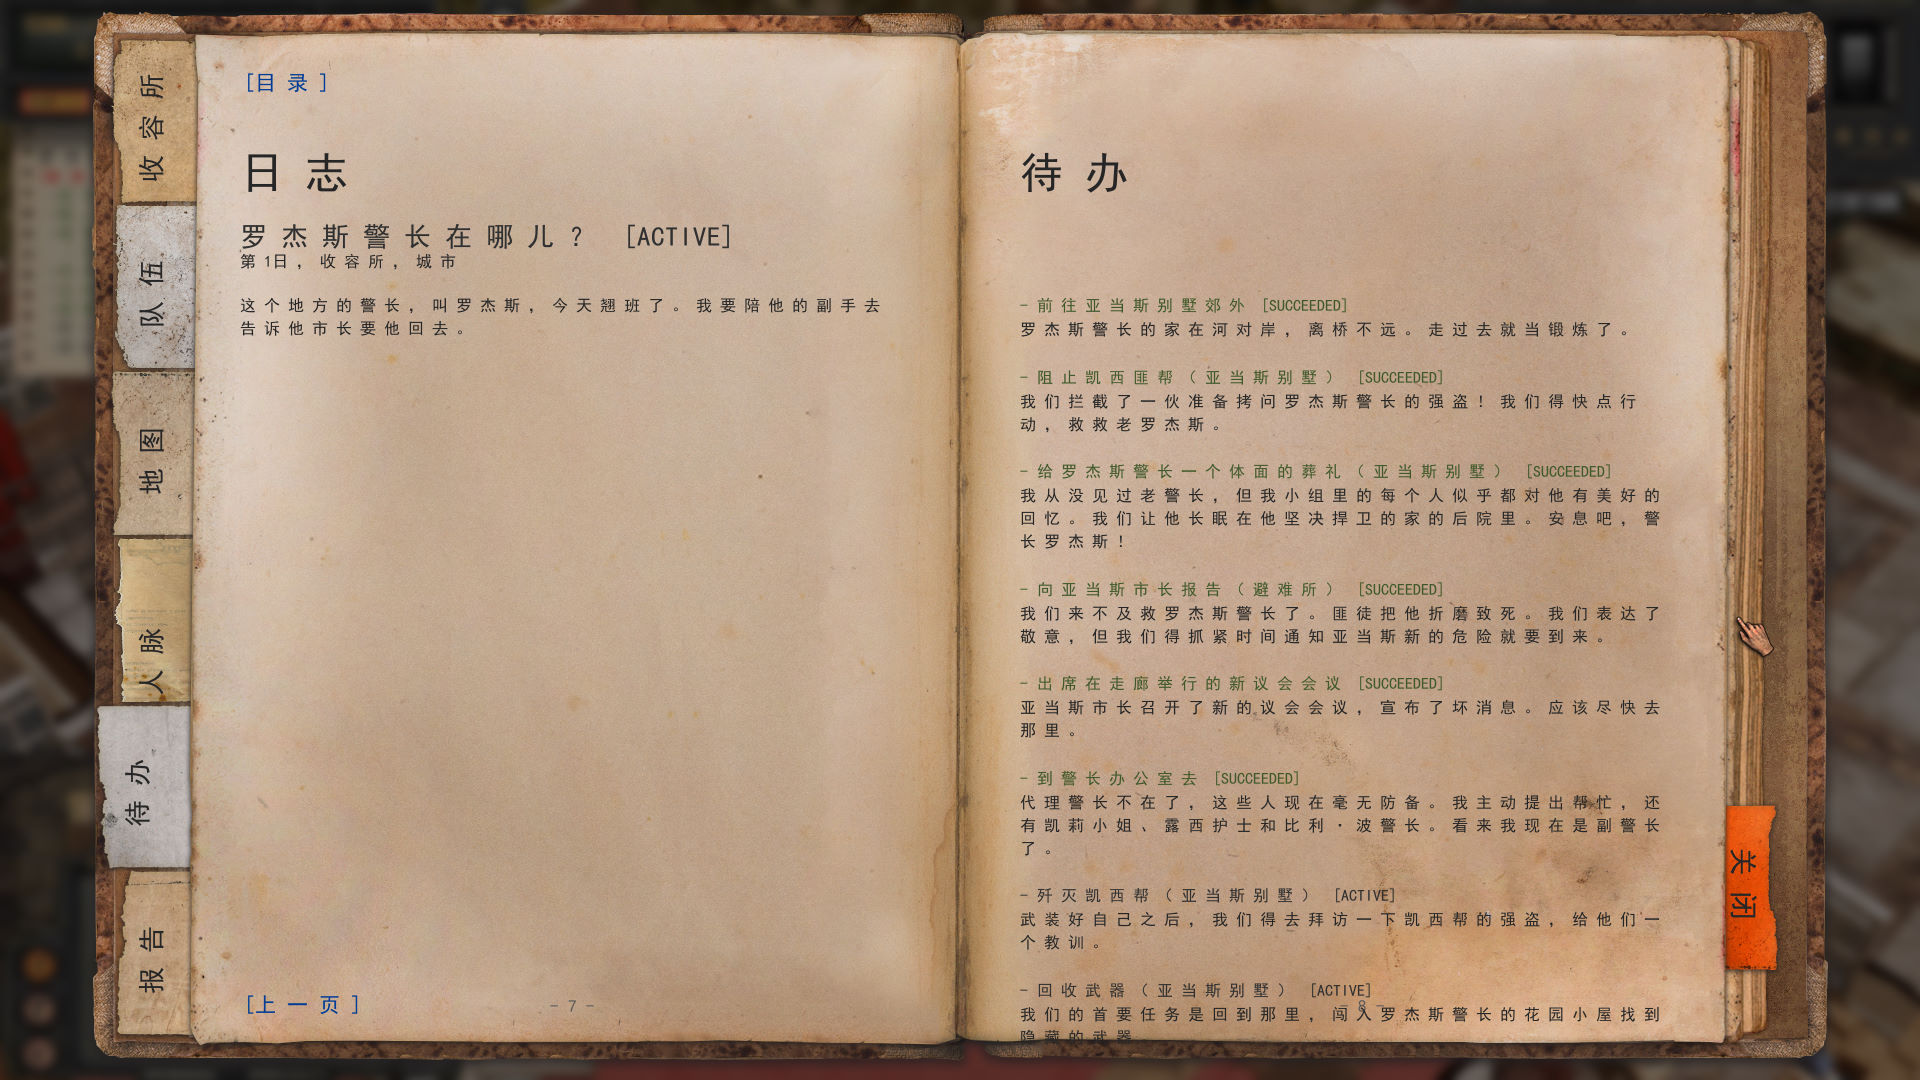 收容所
队伍
地图
人脉
待办
报告
[目录]
日志
罗杰斯警长在哪儿？ [ACTIVE]
第1日，收容所，城市
这个地方的警长，叫罗杰斯，今天翘班了。我要陪他的副手去
告诉他市长要他回去。
[上一页]
-7-
待办
-前往亚当斯别墅郊外 [SUCCEEDED]
罗杰斯警长的家在河对岸，离桥不远。走过去就当锻炼了。
-阻止凯西匪帮（亚当斯别墅） [SUCCEEDED]
我们拦截了一伙准备拷问罗杰斯警长的强盗！我们得快点行
动，救救老罗杰斯。
-给罗杰斯警长一个体面的葬礼（亚当斯别墅） [SUCCEEDED]
我从没见过老警长，但我小组里的每个人似乎都对他有美好的
回忆。我们让他长眠在他坚决捍卫的家的后院里。安息吧，警
长罗杰斯！
-向亚当斯市长报告（避难所） [SUCCEEDED]
我们来不及救罗杰斯警长了。匪徒把他折磨致死。我们表达了
敬意，但我们得抓紧时间通知亚当斯新的危险就要到来。
-出席在走廊举行的新议会会议 [SUCCEEDED]
亚当斯市长召开了新的议会会议，宣布了坏消息。应该尽快去
那里。
-到警长办公室去 [SUCCEEDED]
代理警长不在了，这些人现在毫无防备。我主动提出帮忙，还
有凯莉小姐、露西护士和比利·波警长。看来我现在是副警长
了。
-歼灭凯西帮（亚当斯别墅） [ACTIVE]
武装好自己之后，我们得去拜访一下凯西帮的强盗，给他们一
个教训。
-回收武器（亚当斯别墅） [ACTIVE]
我们的首要任务是回到那里，闯入罗杰斯警长的花园小屋找到
隐藏的武器
-8-
关闭